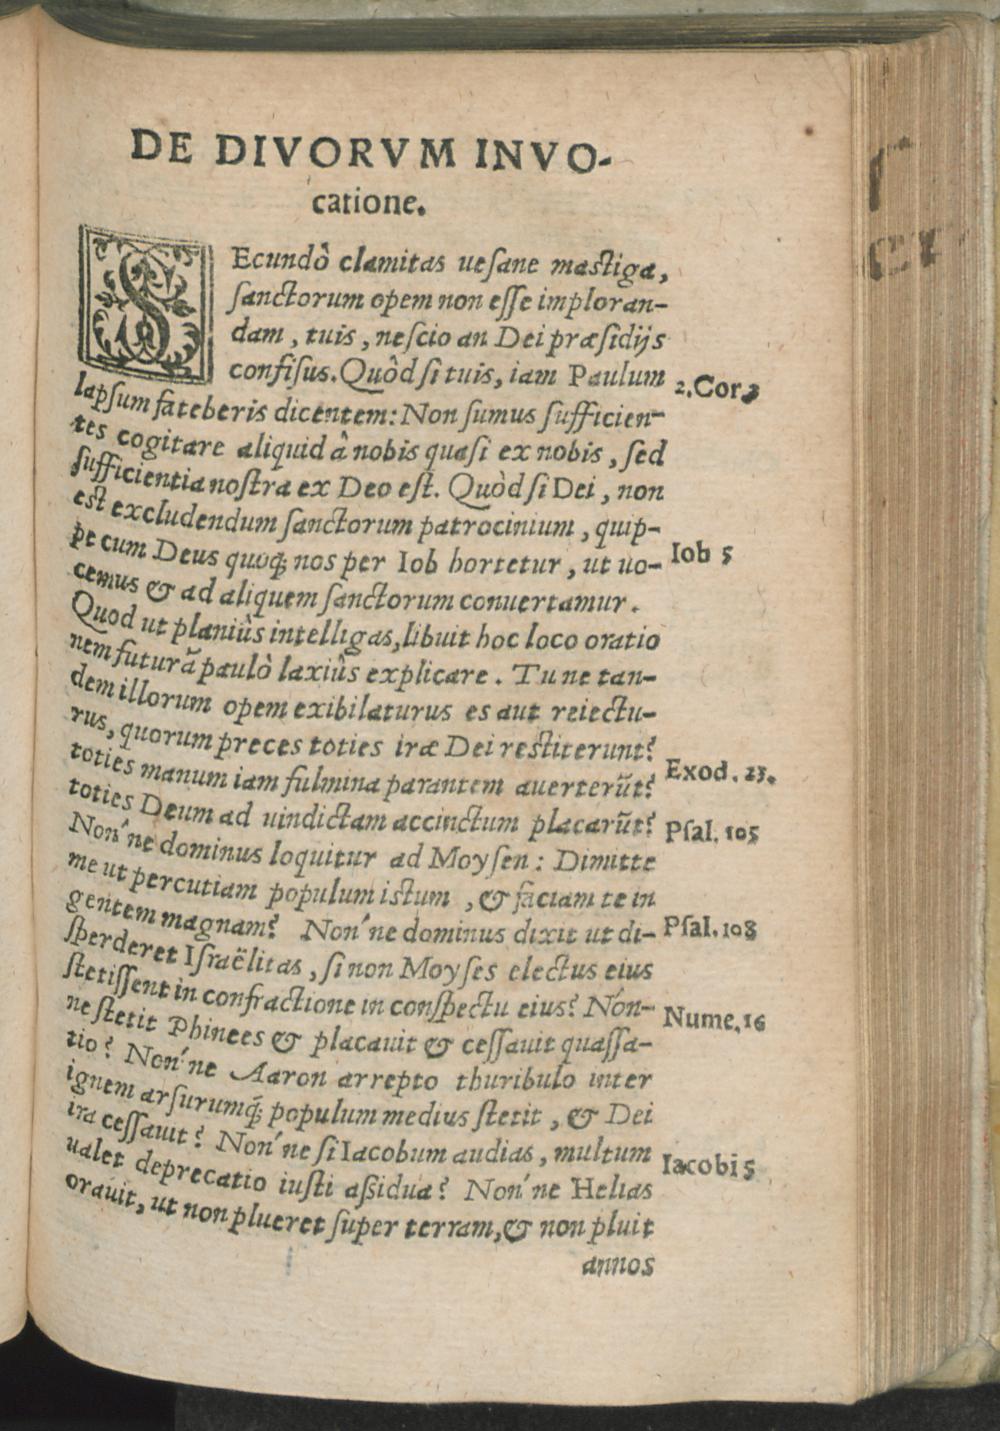 DE DIVORVM INVO-
catione.
SEcundò clamitas uesane mastiga,
sanctorum opem non esse imploran-
dam, tuis, nescio an Dei præsidijs
confisus. Quòd si tuis, iam Paulum 2. Cor. 3
lapsum fateberis dicentem: Non sumus sufficien-
tes cogitare aliquid à nobis quasi ex nobis, sed
sufficientia nostra ex Deo est. Quòd si Dei, non
est excludendum sanctorum patrocinium, quip-
pe cum Deus quoq; nos per Iob hortetur, ut uo- Iob 5
cemus & ad aliquem sanctorum conuertamur.
Quod ut planiùs intelligas, libuit hoc loco oratio
nem futurã paulò laxiùs explicare. Tu ne tan-
dem illorum opem exibilaturus es aut reiectu-
rus, quorum preces toties iræ Dei restiterunt?
toties manum iam fulmina parantem auerterũt? Exod. 23.
toties Deum ad uindictam accinctum placarũt? Psal. 105
Non'ne dominus loquitur ad Moysen: Dimitte
me ut percutiam populum istum, & faciam te in
gentem magnam? Non'ne dominus dixit ut di- Psal. 108
sperderet Israëlitas, si non Moyses electus eius
stetissent in confractione in conspectu eius? Non-
ne stetit Phinees & placauit & cessauit quassa- Nume. 16
tio? Non'ne Aaron arrepto thuribulo inter
ignem arsurumq; populum medius stetit, & Dei
ira cessauit? Non'ne si Iacobum audias, multum Iacobi 5
ualet deprecatio iusti aßidua? Non'ne Helias
orauit, ut non plueret super terram, & non pluit
annos